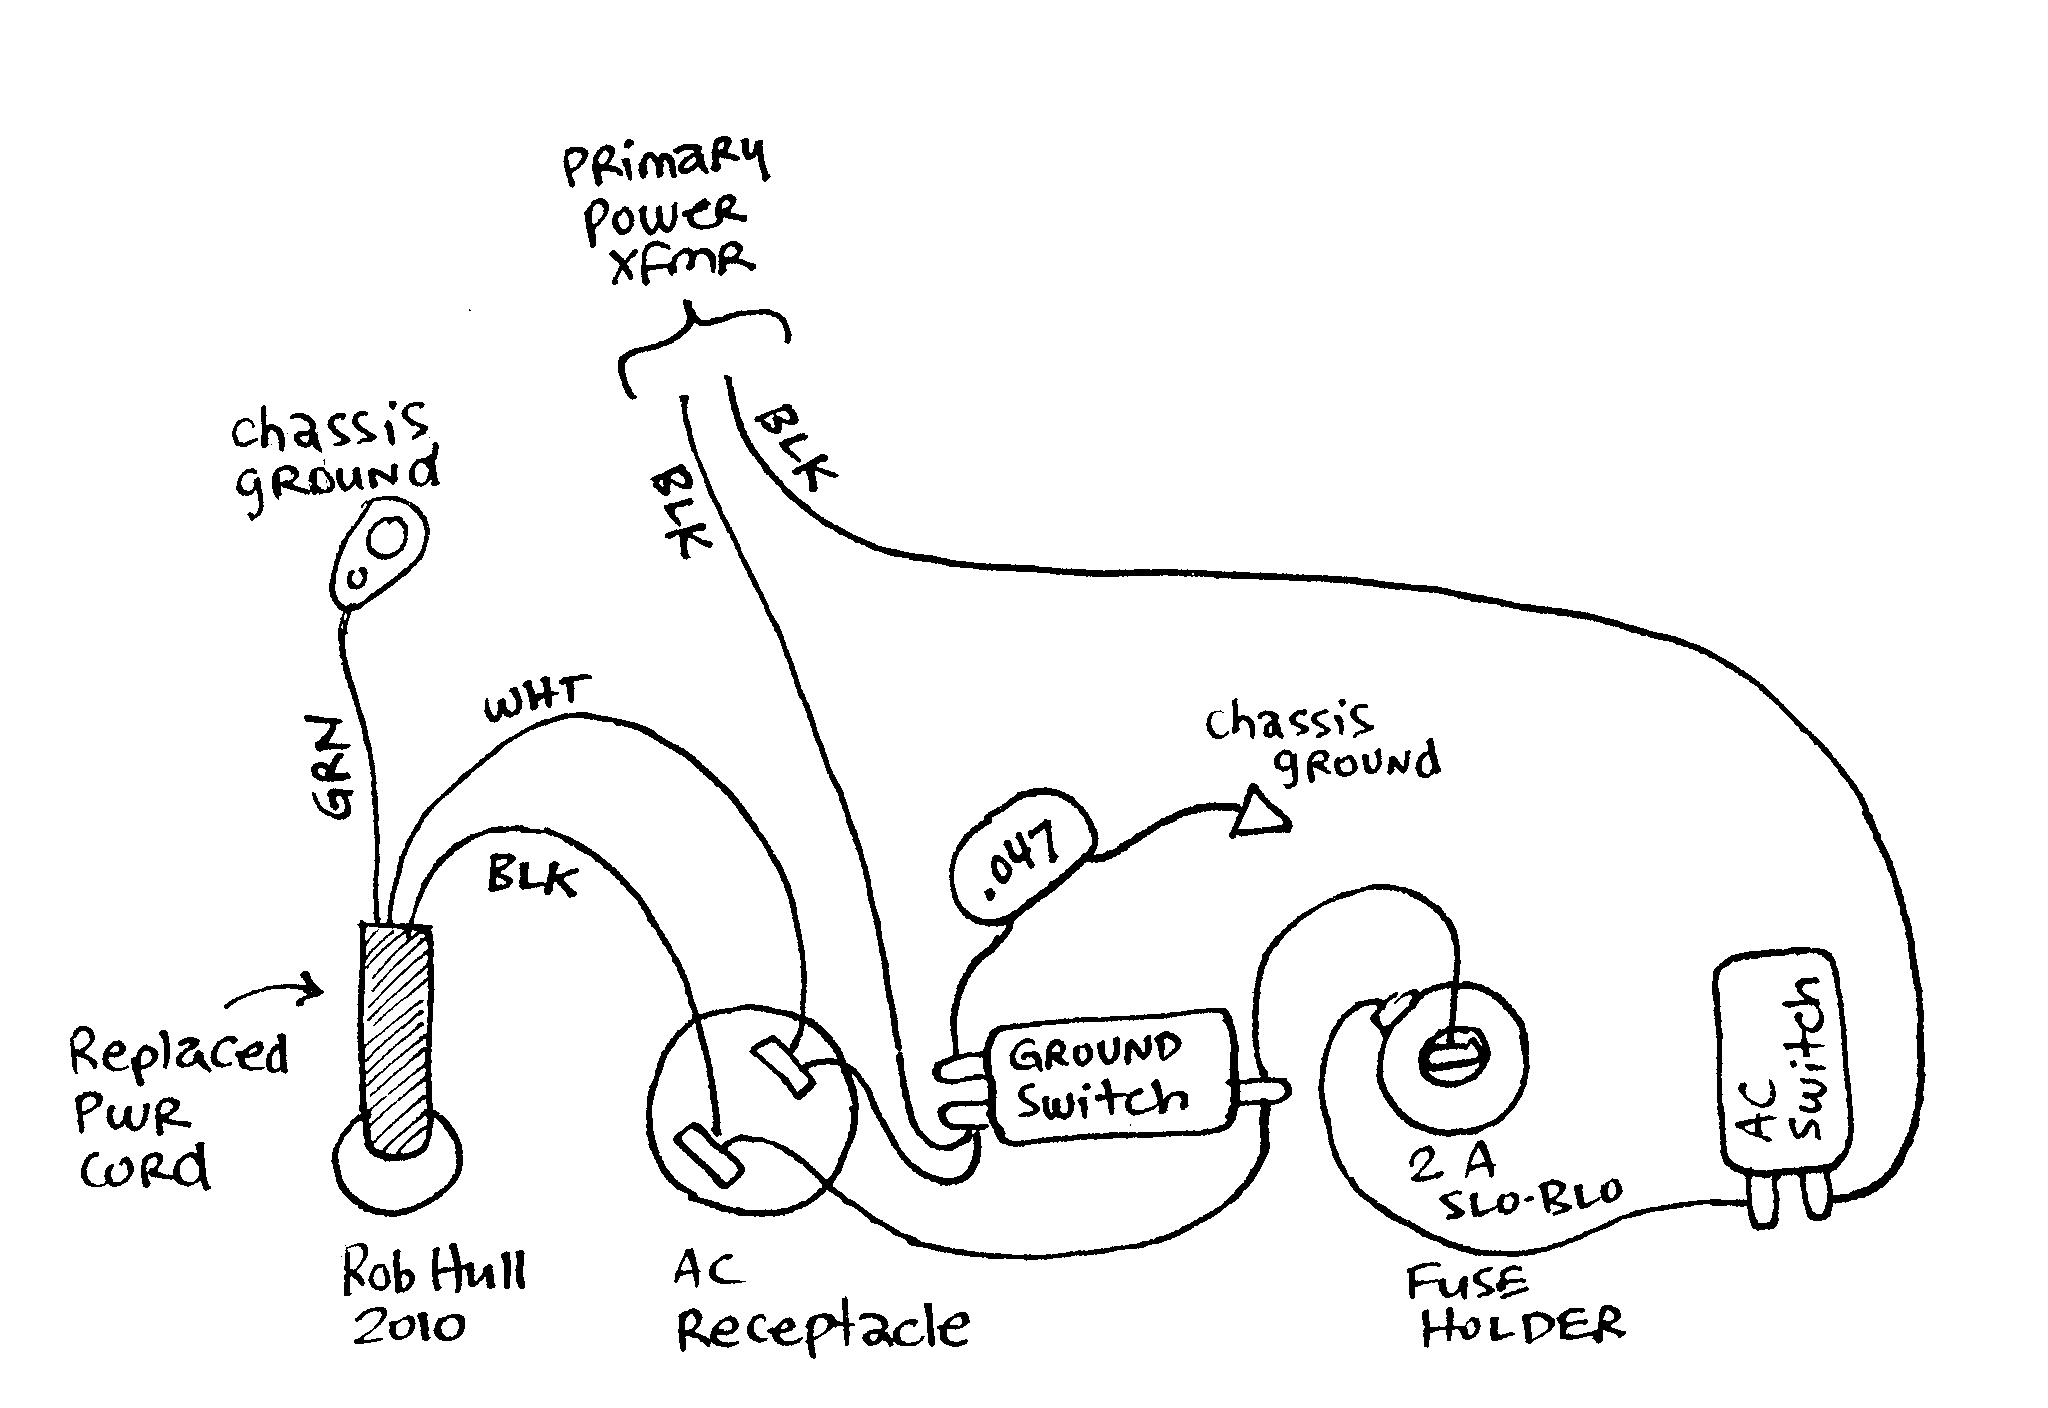 PRimaRy
POWER
XFMR
BLK
BLK
chassis
gROUNd
GRN
WHT
BLK
chassis
gROUNd
.047
GROUND
Switch
AC
Switch
Replaced
PWR
CORd
2 A
SLO-BLO
Rob Hull
2010
AC
Receptacle
FUSE
HOLDER